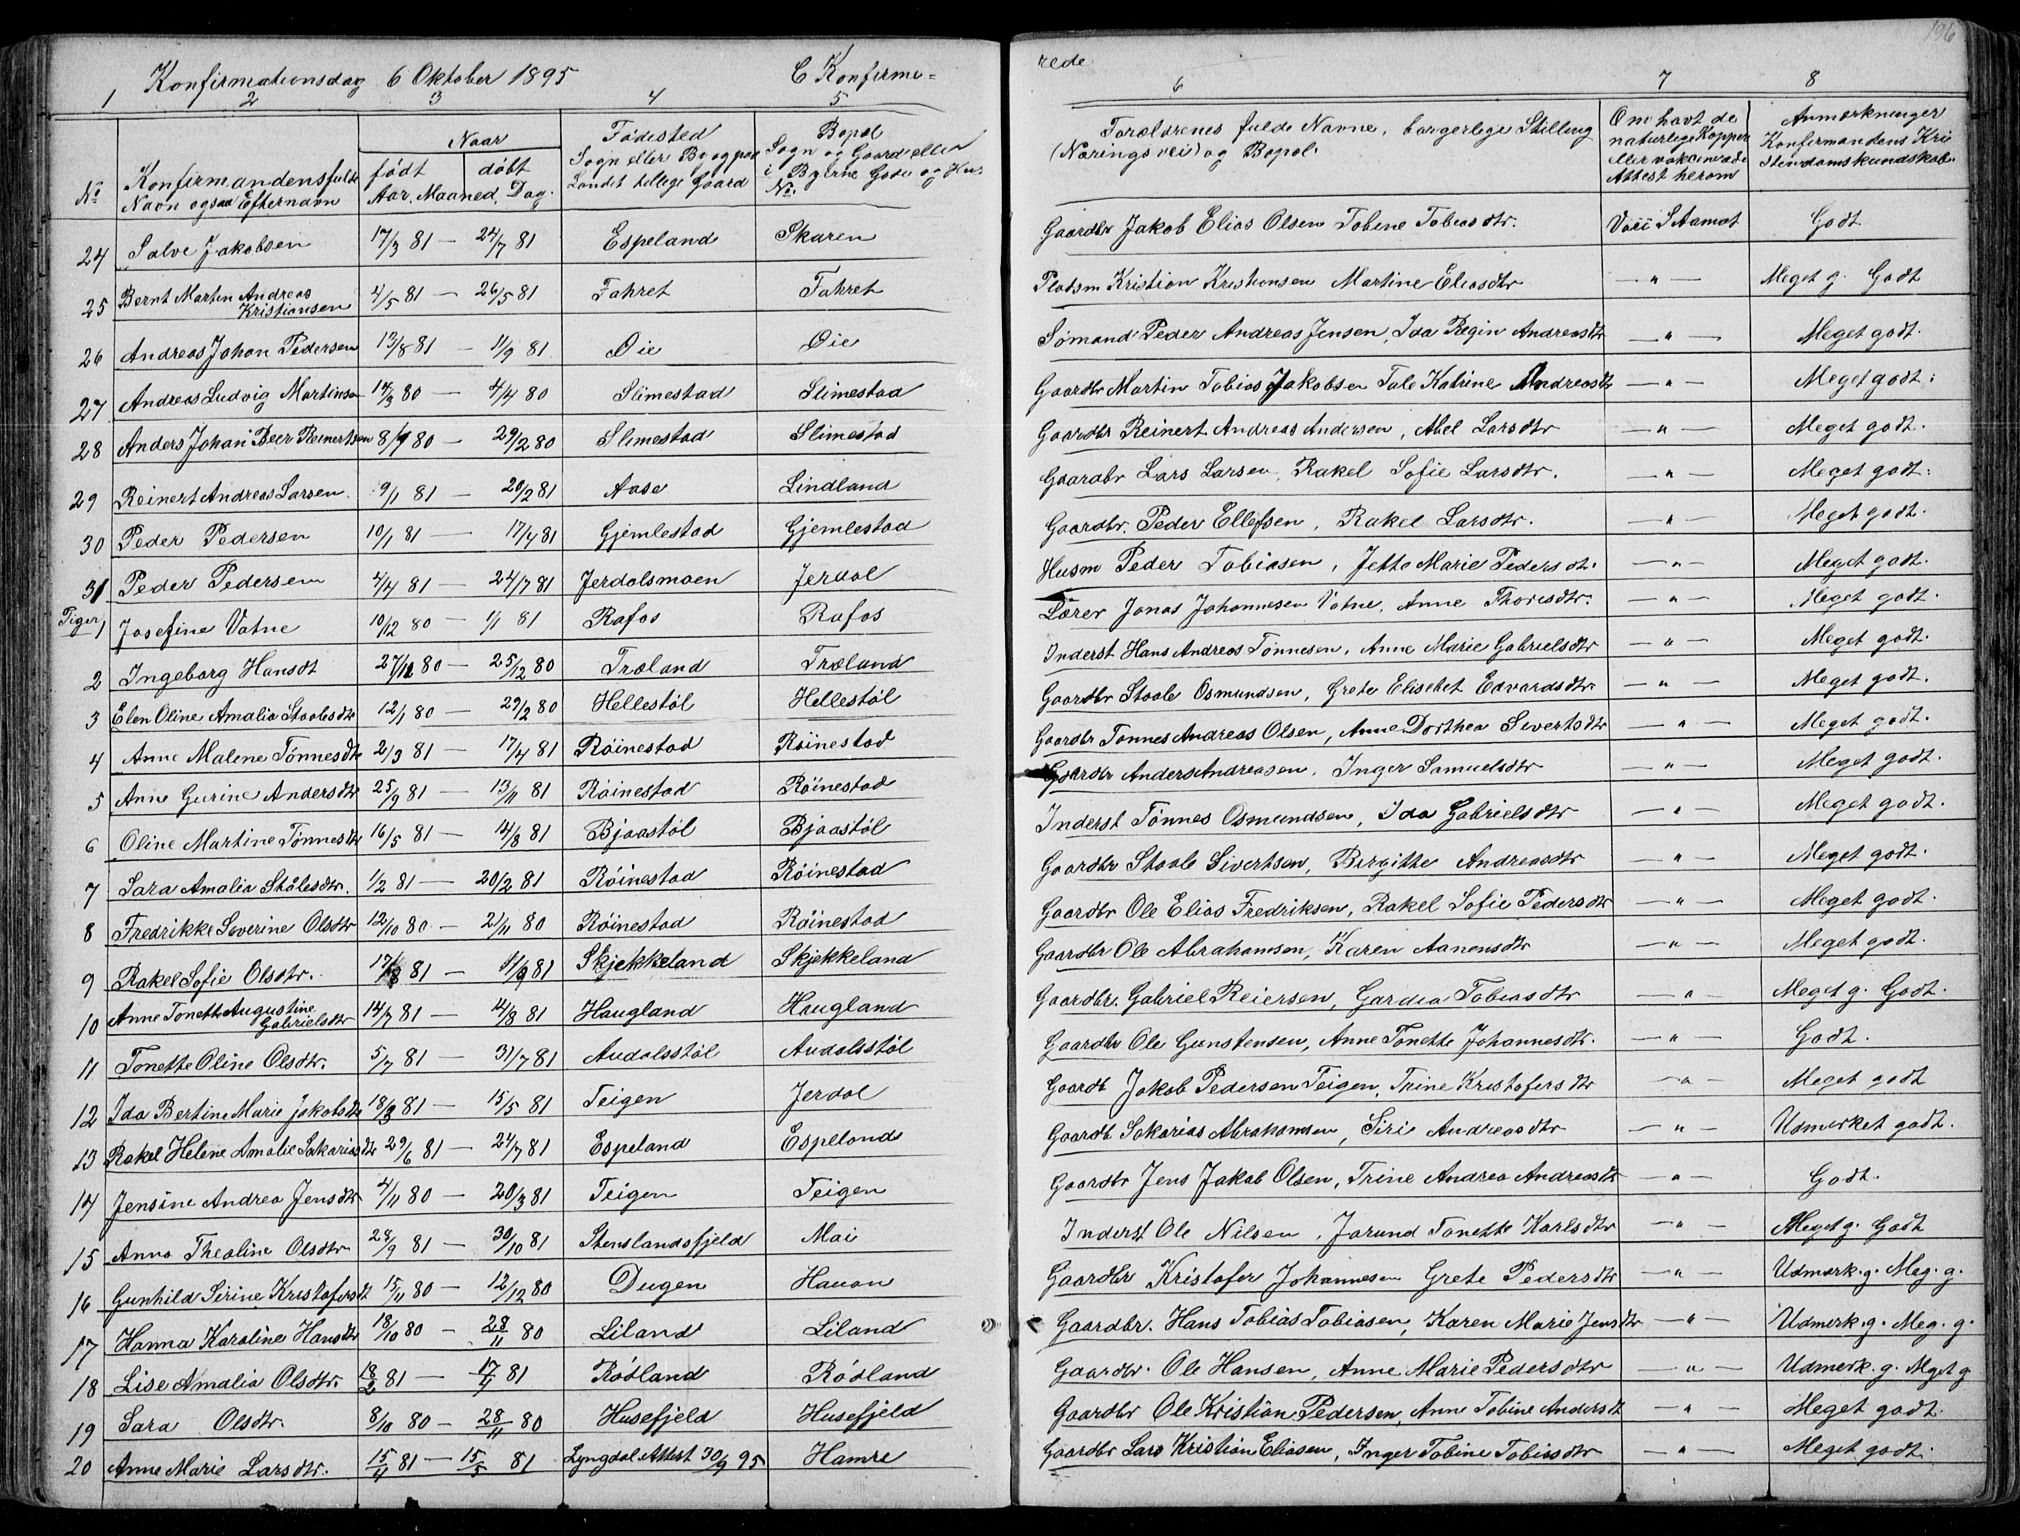 Konfirmationsdag 6 Oktober 1895 C Konfirme=
1 2 3 4 5
No Konfirmandens fulde Navn ogsaa Efternavn
Naar født døbt
Aar, Maaned, Dag.
Fødested
Sogn eller By og paa Landet tillige Gaard
Bopæl
Sogn og Gaard eller i Byerne Gade og Hus No.
24 Salve Jakobsen 17/3 81 — 24/7 81 Espeland Skaren
25 Bernt Martin Andreas Kristiansen 4/5 81 — 26/5 81 Fahret Fahret
26 Andreas Johan Pedersen 13/8 81 — 11/9 81 Øie Øie
27 Andreas Ludvig Martinsen 14/3 80 — 4/4 80 Slimestad Slimestad
28 Anders Johan Beer Reinertsen 8/1 80 — 29/2 80 Slimestad Slimestad
29 Reinert Andreas Larsen 9/1 81 — 20/2 81 Aase Lindland
30 Peder Pedersen 10/1 81 — 17/4 81 Gjemlestad Gjemlestad
31 Peder Pedersen 4/4 81 — 24/7 81 Jerdalsmoen Jerdal
Piger
1 Josefine Vatne 10/12 80 — 1/1 81 Rafos Rafos
2 Ingeborg Hansdt 27/11 80 — 25/12 80 Træland Træland
3 Elen Oline Amalia Staalesdtr 12/1 80 — 29/2 80 Hellestøl Hellestøl
4 Anne Malene Tønnesdtr 2/3 81 — 17/4 81 Røinestad Røinestad
5 Anne Gurine Andersdtr 25/9 81 — 13/11 81 Røinestad Røinestad
6 Oline Martine Tønnesdtr 16/5 81 — 14/8 81 Bjaastøl Bjaastøl
7 Sara Amalia Stålesdtr. 1/2 81 — 20/2 81 Røinestad Røinestad
8 Fredrikke Severine Olsdtr 12/10 80 — 21/11 80 Røinestad Røinestad
9 Rakel Sofie Olsdtr. 17/8 81 — 11/9 81 Skjekkeland Skjekkeland
10 Anne Tonette Augustine Gabrielsdtr 14/7 81 — 14/8 81 Haugland Haugland
11 Tonette Oline Olsdtr. 5/7 81 — 31/7 81 Audalsstøl Audalsstøl
12 Ida Bertine Marie Jakobsdtr 18/3 81 — 15/5 81 Teigen Jerdal
13 Rakel Helene Amalie Sakariasdtr 29/6 81 — 24/7 81 Espeland Espeland
14 Jensine Andrea Jensdtr 4/11 80 — 20/3 81 Teigen Teigen
15 Anna Thealine Olsdtr 28/9 81 — 30/10 81 Stenslandsfjeld Mai
16 Gunhild Sirine Kristofersdt 15/11 80 — 12/12 80 Dugen Hauan
17 Hanna Karoline Hansdtr 18/10 80 — 28/11 80 Liland Liland
18 Lise Amalia Olsdtr. 18/2 81 — 17/4 81 Rødland Rødland
19 Sara Olsdtr. 8/10 80 — 28/11 80 Husefjeld Husefjeld
20 Anne Marie Larsdtr. 15/4 81 — 15/5 81 Lyngdal Attest 30/9 95 Hamre
rede
126
6 7 8
Forældrenes fulde Navne, borgerlige Stilling (Næringsvei) og Bopæl.
Om havt de naturlige Kopper eller vakcinerede Attest herom
Anmerkninger
Konfirmandens Kristendomskundskab.
Gaardbr Jakob Elias Olsen Tobine Tobiasdtr. Godt
Pladsm Kristian Kristiansen Martine Eliasdtr — " — Meget g. Godt
Sømand Peder Andreas Jensen, Ida Regin Andreasdtr — " — Meget godt.
Gaardbr Martin Tobias Jakobsen Tale Katrine Andreasdtr — " — Meget godt.
Gaardbr Reinert Andreas Andersen, Abel Larsdtr — " — Meget godt.
Gaardbr Lars Larsen, Rakel Sofie Larsdtr. — " — Meget godt.
Gaardbr. Peder Ellefsen, Rakel Larsdtr. — " — Meget godt.
Husm Peder Tobiasen, Jette Marie Pedersdt. — " — Meget godt.
Lærer Jonas Johannesen Vatne, Anne Thoresdtr. — " — Meget godt.
Inderst Hans Andreas Tønnesen, Anne Marie Gabrielsdtr — " — Meget godt.
Gaardbr Staale Osmundsen, Grete Elisebet Edvardsdtr — " — Meget godt.
Gaardbr Tønnes Andreas Olsen, Anne Dorthea Sivertsdtr — " — Meget godt.
Gaardbr Anders Andreasen, Inger Samuelsdtr — " — Meget godt.
Inderst Tønnes Osmundsen, Ida Gabrielsdtr — " — Meget godt.
Gaardbr Staale Sivertsen, Birgitte Andreasdtr — " — Meget godt.
Gaardbr Ole Elias Fredriksen, Rakel Sofie Pedersdtr — " — Meget godt.
Gaardbr Ole Abrahamsen, Karen Aanensdtr — " — Meget godt.
Gaardbr. Gabriel Reiersen, Gardea Tobiasdtr — " — Meget g. Godt.
Gaardbr Ole Gunstensen, Anne Tonette Johannesdtr. — " — Godt.
Gaardb Jakob Pedersen Teigen, Trine Kristofersdtr — " — Meget godt
Gaardb Sakarias Abrahamsen, Siri Andreasdtr — " — Udmerket godt.
Gaardbr Jens Jakob Olsen, Trine Andrea Andreasdtr — " — Godt.
Inderst Ole Nilsen, Jorund Tonette Karlsdtr — " — Meget g. Godt
Gaardbr Kristofer Johannesen Grete Pedersdtr — " — Udmerk. g. Meg. g.
Gaardbr. Hans Tobias Tobiasen, Karen Marie Jensdtr — " — Udmerk. g. Meg. g.
Gaardbr. Ole Hansen, Anne Marie Pedersdtr — " — Udmerk. g. Meget g
Gaardbr Ole Kristian Pedersen, Anne Tobine Andersdt — " — Meget godt.
Gaardbr Lars Kristian Eliasen, Inger Tobine Tobiasdtr — " — Meget godt.